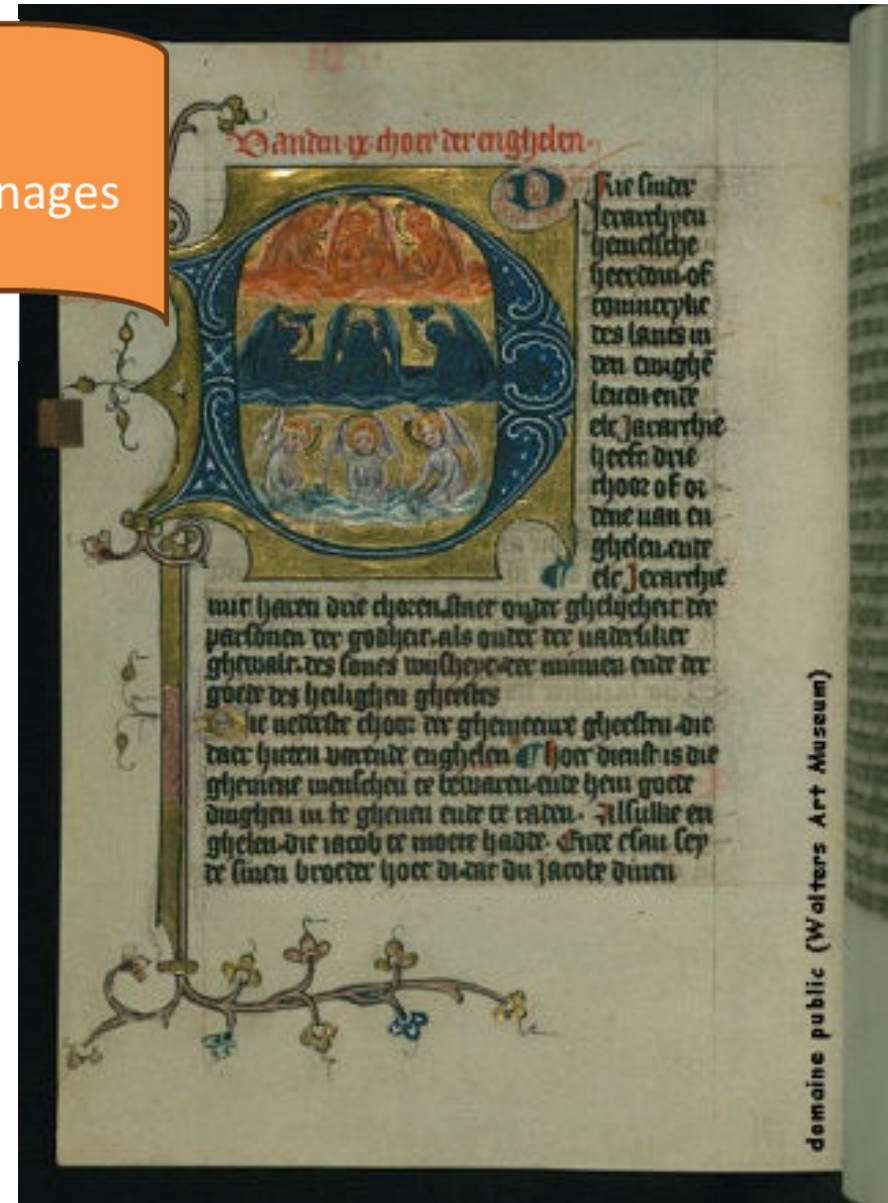 nages
Vanden ix choer der enghelen
D rie sinder
Jerarchyen
hemelsche
heerdom of
conincryke
des lants in
den ewighē
leuen ende
elc Jerarchie
heeft drie
choor of or
dene uan en
ghelen ende
elc Jerarchie
mit haren drie choren staer onder ghelycheit der
parsonen der godheit als onder der uaderliker
ghewalt des sones wysheyt der minnen ende der
goede des heilighen gheestes
Die nederste choor der ghemeenre gheesten die
daer hieten uarende enghelen ¶ Hoer dienst is die
ghemene menschen te bewaren ende hem goede
dinghen in te gheuen ende te raden. Alsulke en
ghelen die iacob te moete hadde. Ende esau sey
de sinen broeder hoer di dat du Jacobe dinen
domaine public (Walters Art Museum)